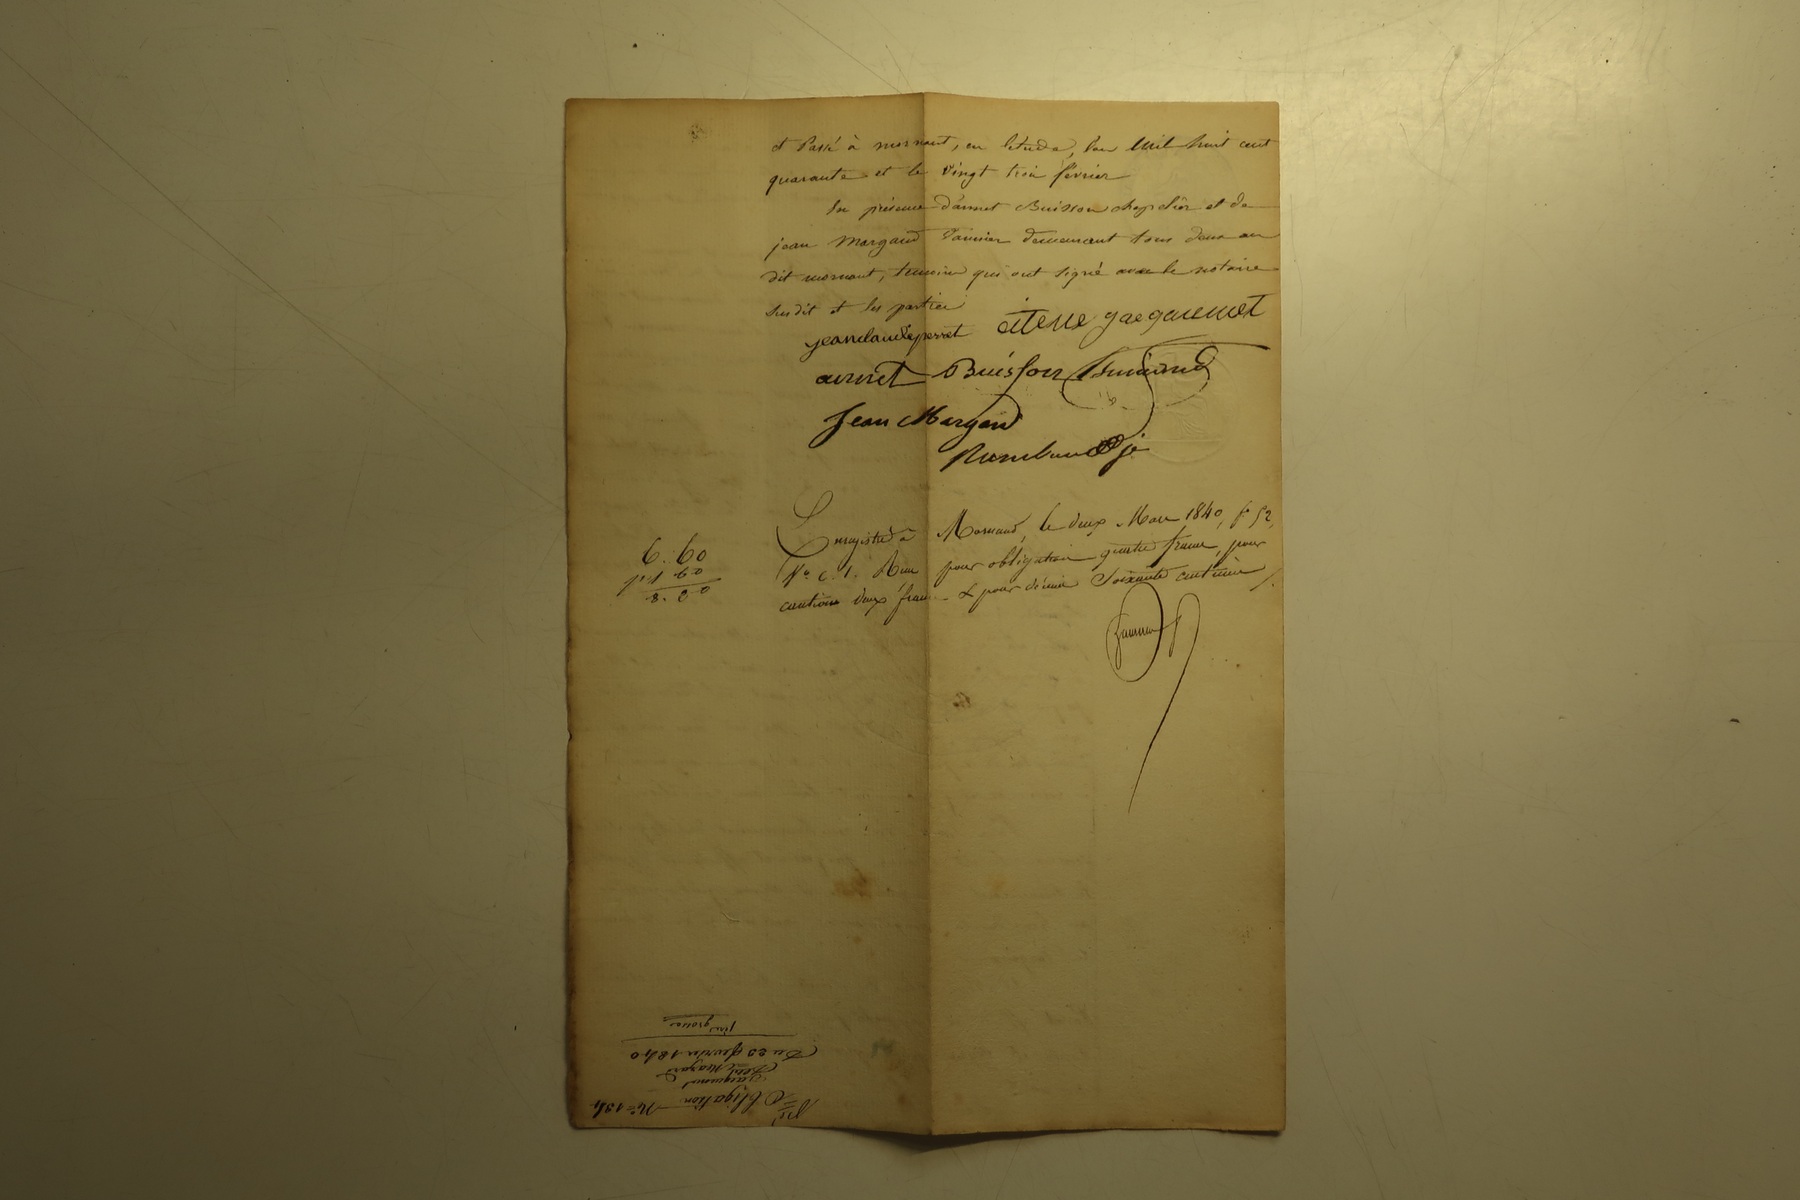 et Passé à mornant, en létude, lan Mil huit cent
quarante et le vingt trois février
En présence d'annet Buisson chapelier et de
jean Margaud vannier demeurant tous deux au
dit mornant, temoins qui ont signé avec le notaire
susdit et les parties
jeanclaudeperret
annet Buisson
Jean Margaud
6. 60
1 60
8. 20
Enregistré à Mornant, le deux Mars 1840, fo 52,
Vo c. 1. Reçu pour obligation quatre francs, pour
caution deux francs & pour décime soixante centimes
Obligation No 134
Du 23 février 1840
grosse